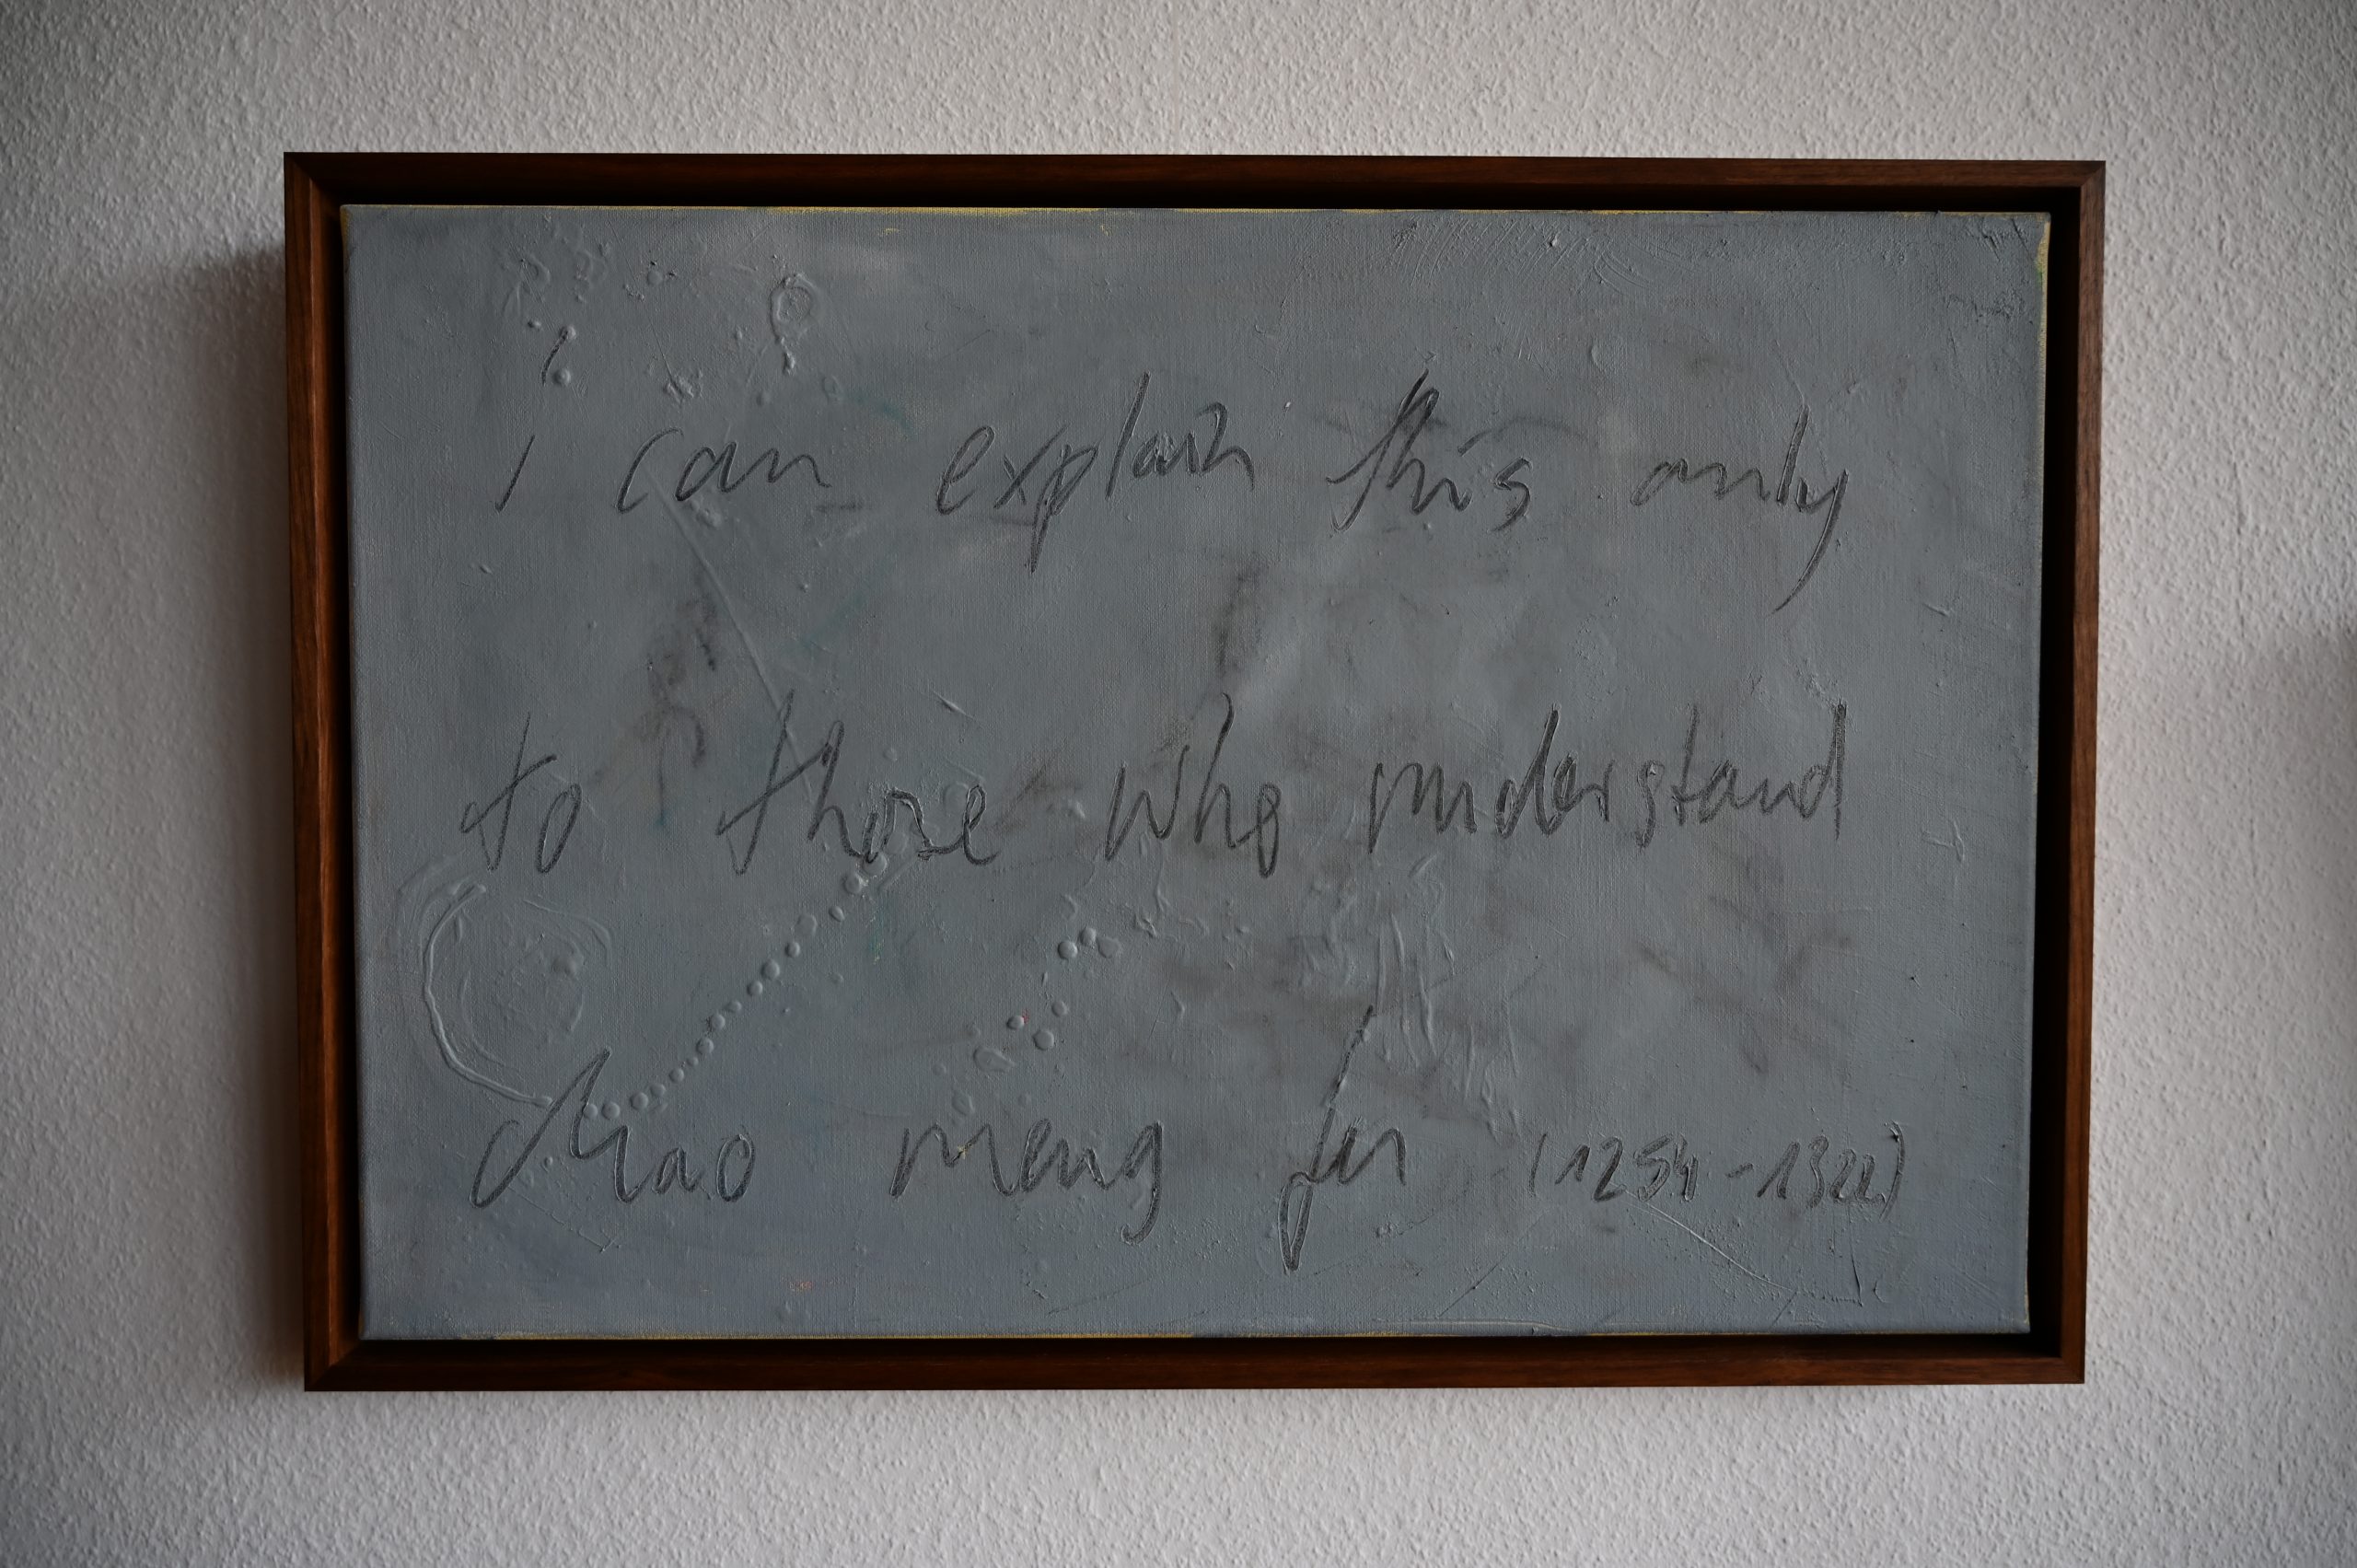 i can explain this only
to those who understand
chao meng fu (1254-1322)